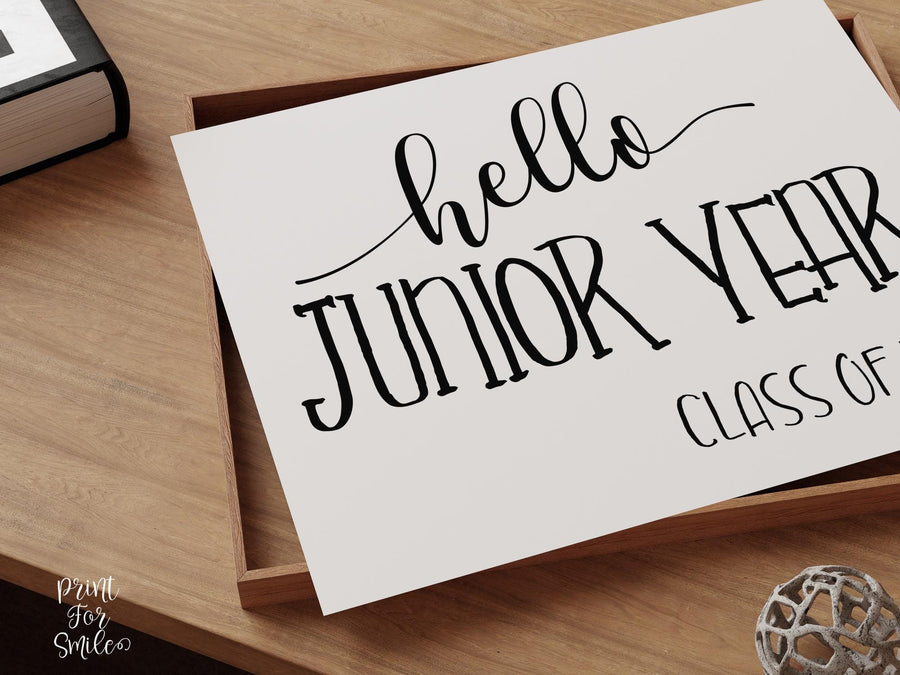 hello
JUNIOR YEAR
CLASS OF
Print
For
Smile